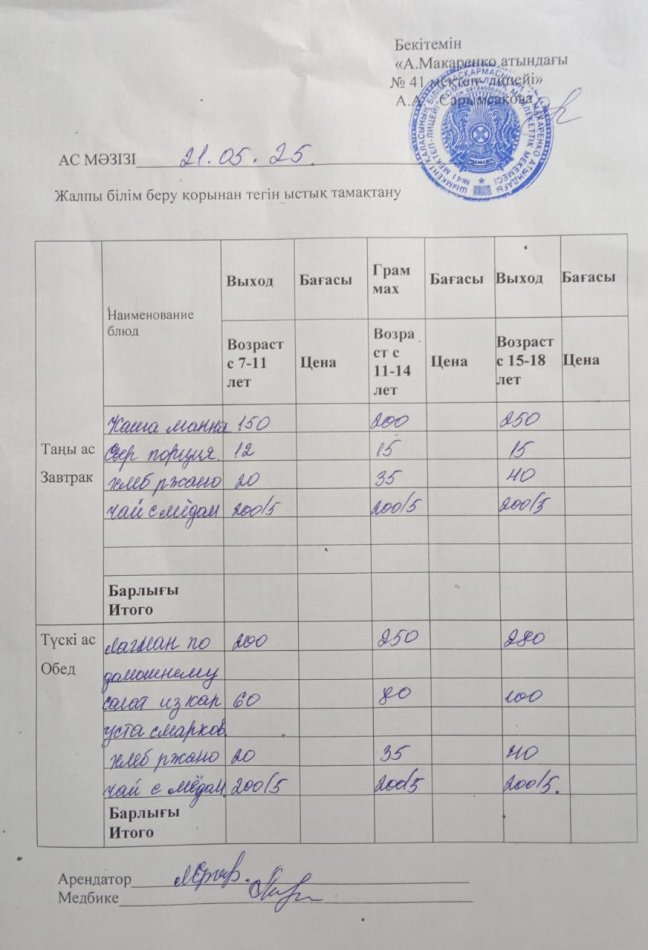 Бекітемін
«А.Макаренко атындағы
№ 41 мектеп- лицейі»
А.А. Сарымсакова
АС МӘЗІЗІ 21.05.25.
Жалпы білім беру қорынан тегін ыстық тамақтану
Наименование блюд Выход Бағасы Грам мах Бағасы Выход Бағасы
Возраст с 7-11 лет Цена Возра ст с 11-14 лет Цена Возраст с 15-18 лет Цена
Таңы ас
Завтрак
Каша манна. 150 200 250
Сыр порция 12 15 15
хлеб ржано 20 35 40
чай с мёдом 200/5 200/5 200/5
Барлығы
Итого
Түскі ас
Обед
лагман по 200 250 280
домошнему
салат из кап 60 80 100
уста смарков
хлеб ржано 20 35 40
чай с мёдом. 200/5 200/5 200/5.
Барлығы
Итого
Арендатор
Медбике